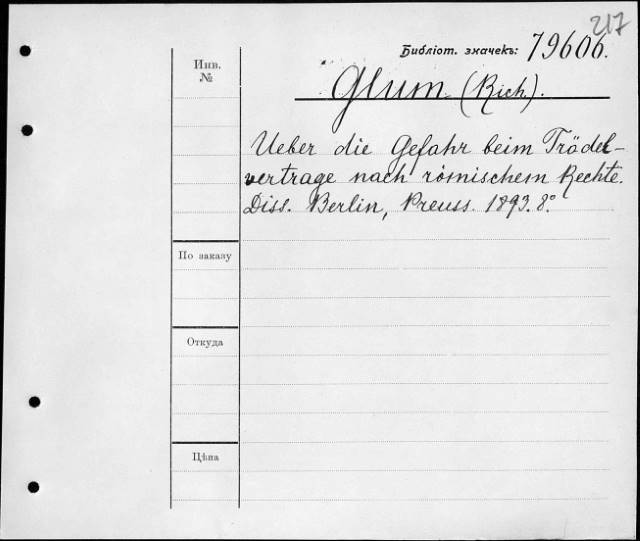 217
Библіот. значекъ: 79606.
Инв. №
Glum (Rich.).
Ueber die Gefahr beim Trödel-
vertrage nach römischem Rechte.
Diss. Berlin, Preuss. 1893. 8°.
По заказу
Откуда
Цѣна